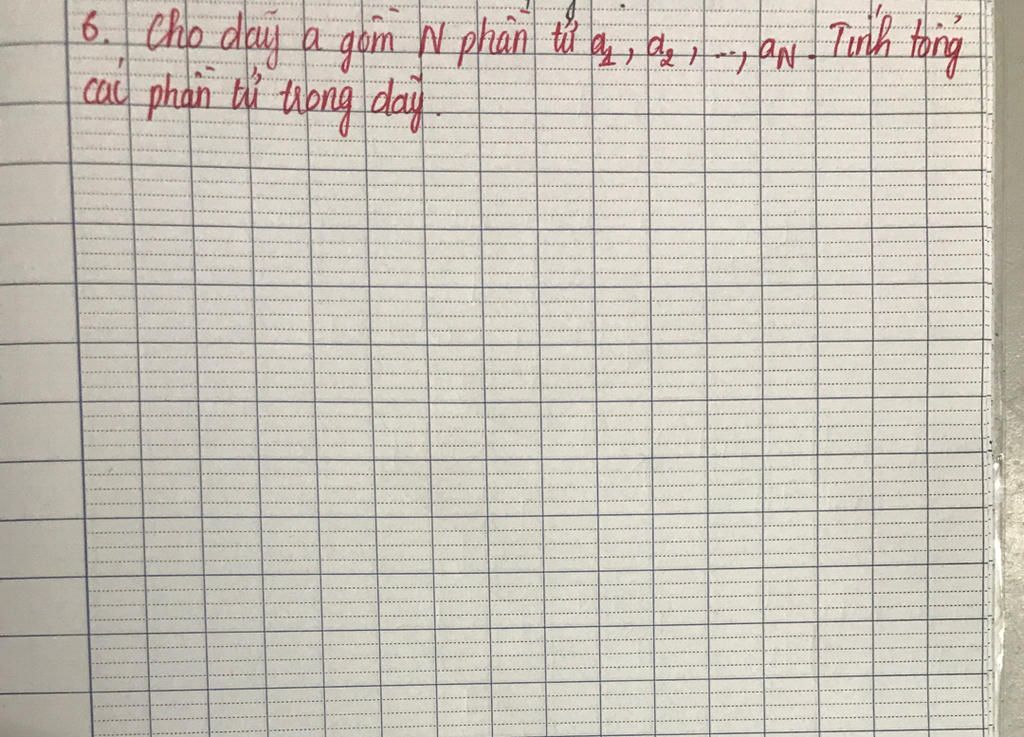 6. Cho dãy a gồm N phần tử a₁, a₂, ..., aN. Tính tổng
các phần tử trong dãy.